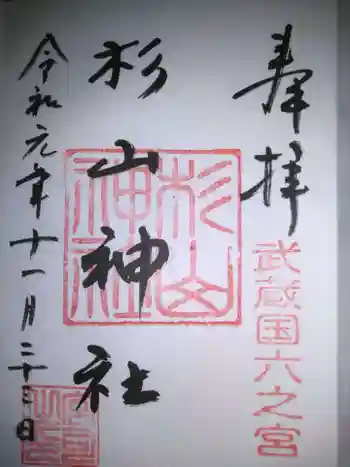 奉拝
武蔵国六之宮
杉山神社
杉山
神社
令和元年十一月二十三日